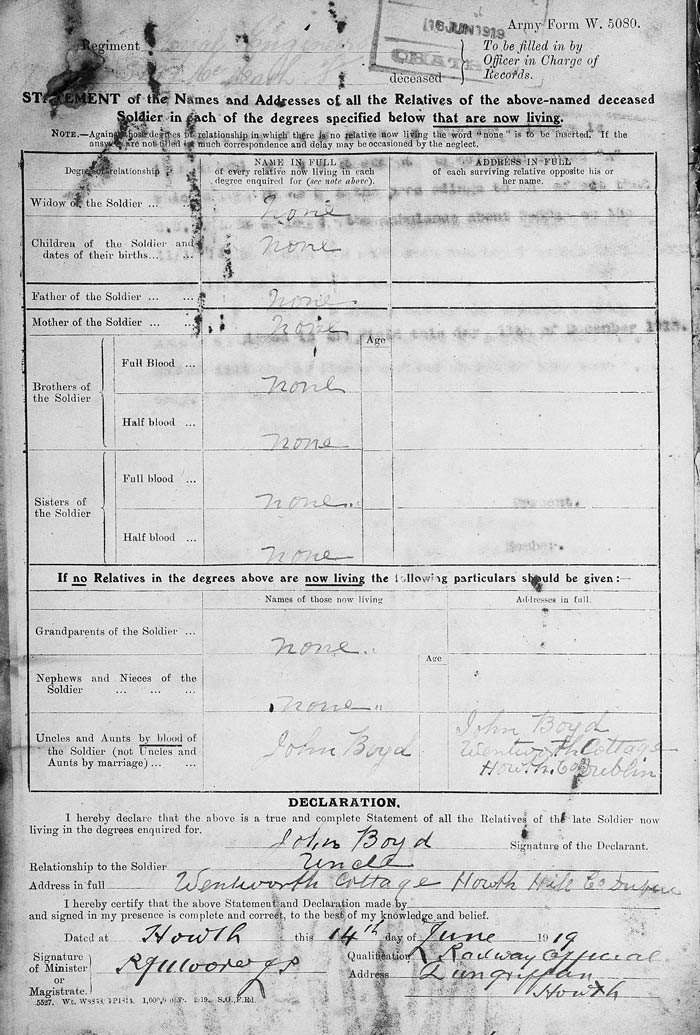 16 JUN 1919
CHATH
Army Form W. 5080.
Regiment
To be filled in by
Officer in Charge of
Records.
deceased
STATEMENT of the Names and Addresses of all the Relatives of the above-named deceased
Soldier in each of the degrees specified below that are now living.
NOTE.—Against those degrees of relationship in which there is no relative now living the word "none" is to be inserted. If the
answers are not filled in much correspondence and delay may be occasioned by the neglect.
Degrees of relationship
NAME IN FULL
of every relative now living in each
degree enquired for (see note above).
ADDRESS IN FULL
of each surviving relative opposite his or
her name.
Widow of the Soldier ... None
Children of the Soldier and
dates of their births... ... None
Father of the Soldier ... ... None
Mother of the Soldier ... ... None
Age
Brothers of
the Soldier
Full Blood ... None
Half blood ... None
Sisters of
the Soldier
Full blood ... None
Half blood ... None
If no Relatives in the degrees above are now living the following particulars should be given:—
Names of those now living
Addresses in full.
Grandparents of the Soldier ... None
Age
Nephews and Nieces of the
Soldier ... ... ... None
Uncles and Aunts by blood of
the Soldier (not Uncles and
Aunts by marriage) ... ...
John Boyd
John Boyd
Wentworth Cottage
Howth Co Dublin
DECLARATION.
I hereby declare that the above is a true and complete Statement of all the Relatives of the late Soldier now
living in the degrees enquired for.
John Boyd Signature of the Declarant.
Relationship to the Soldier Uncle
Address in full Wentworth Cottage Howth Hill Co Dublin
I hereby certify that the above Statement and Declaration made by
and signed in my presence is complete and correct, to the best of my knowledge and belief.
Dated at Howth this 14th day of June 1919
Signature
of Minister
or
Magistrate.
Qualification Railway Official
Address Dungriffan
Howth